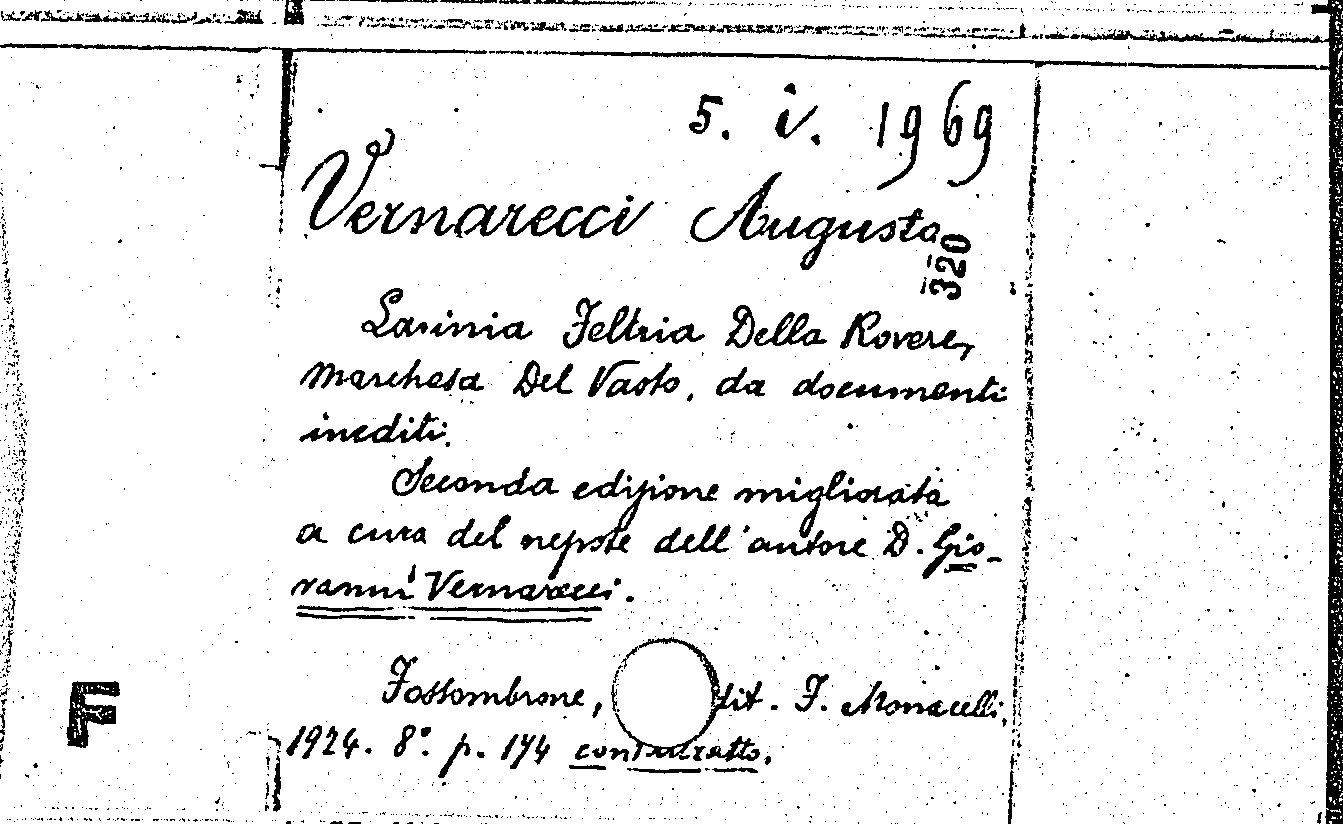 5. i. 1969
Vernarecci Augusto
320
Lavinia Feltria Della Rovere,
Marchesa Del Vasto, da documenti
inediti.
Seconda edizione migliorata
a cura del nepote dell'autore D. Gio-
vanni Vernarecci.
Fossombrone, tit. F. Monacelli,
1924. 8°. p. 174 con ritratto.
F